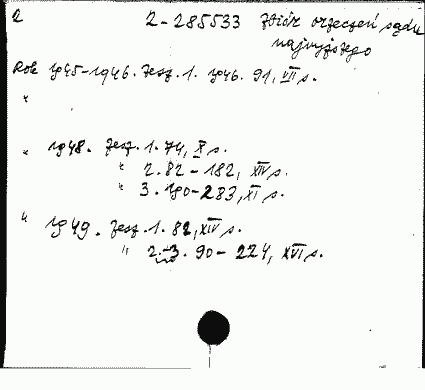 a 2-285533 Zbiór orzeczeń sądu
najwyższego
Rok 1945-1946. Zesz. 1. 1946. 91, VII s.
"
" 1948. Zesz. 1. 74, X s.
" 2. 82-182, XIV s.
" 3. 190-283, XI s.
" 1949. Zesz. 1. 82, XIV s.
" 2.-3. 90-224, XVI s.